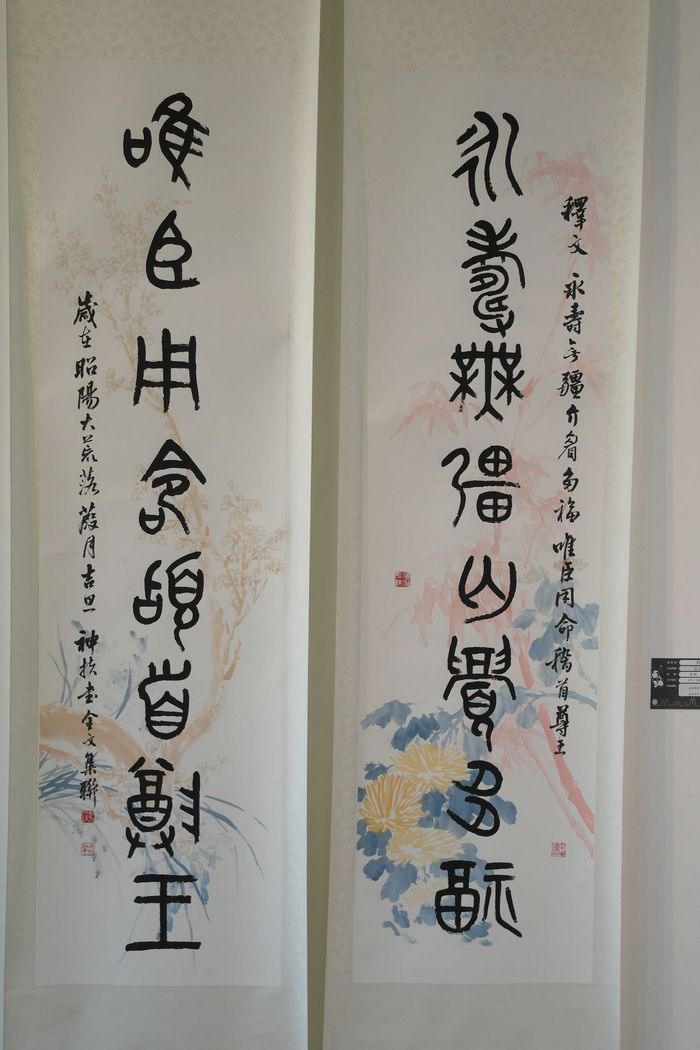 釋文 永壽無疆介眉多福唯臣用命稽首尊王
永壽無疆介眉多福
唯臣用命稽首尊王
歲在昭陽大荒落葭月吉旦 神扶書金文集聯